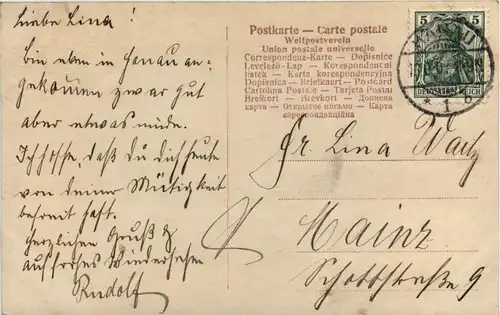 Liebe Lina!
Bin eben in Hanau an-
gekommen zwar gut
aber etwas müde.
Ich hoffe, daß du dich heute
von deiner Mütigkeit
befreit hast.
Herzlichen Gruß &
auf frohes Wiedersehen
Rudolf
Postkarte — Carte postale
Weltpostverein
Union postale universelle
Correspondenz-Karte — Dopisnice
Levelező-Lap — Korespondencni
listek — Karta korespondencyjna
Dopisnica — Briefkaart — Postcard
Cartolina Postale — Tarjeta Postal
Brefkort — Brevkort — Дописна
карта — Открытое письмо — Карта
корреспонденційна
5 5
DEUTSCHES REICH
Fr. Lina
Mainz
Schottstraße 9